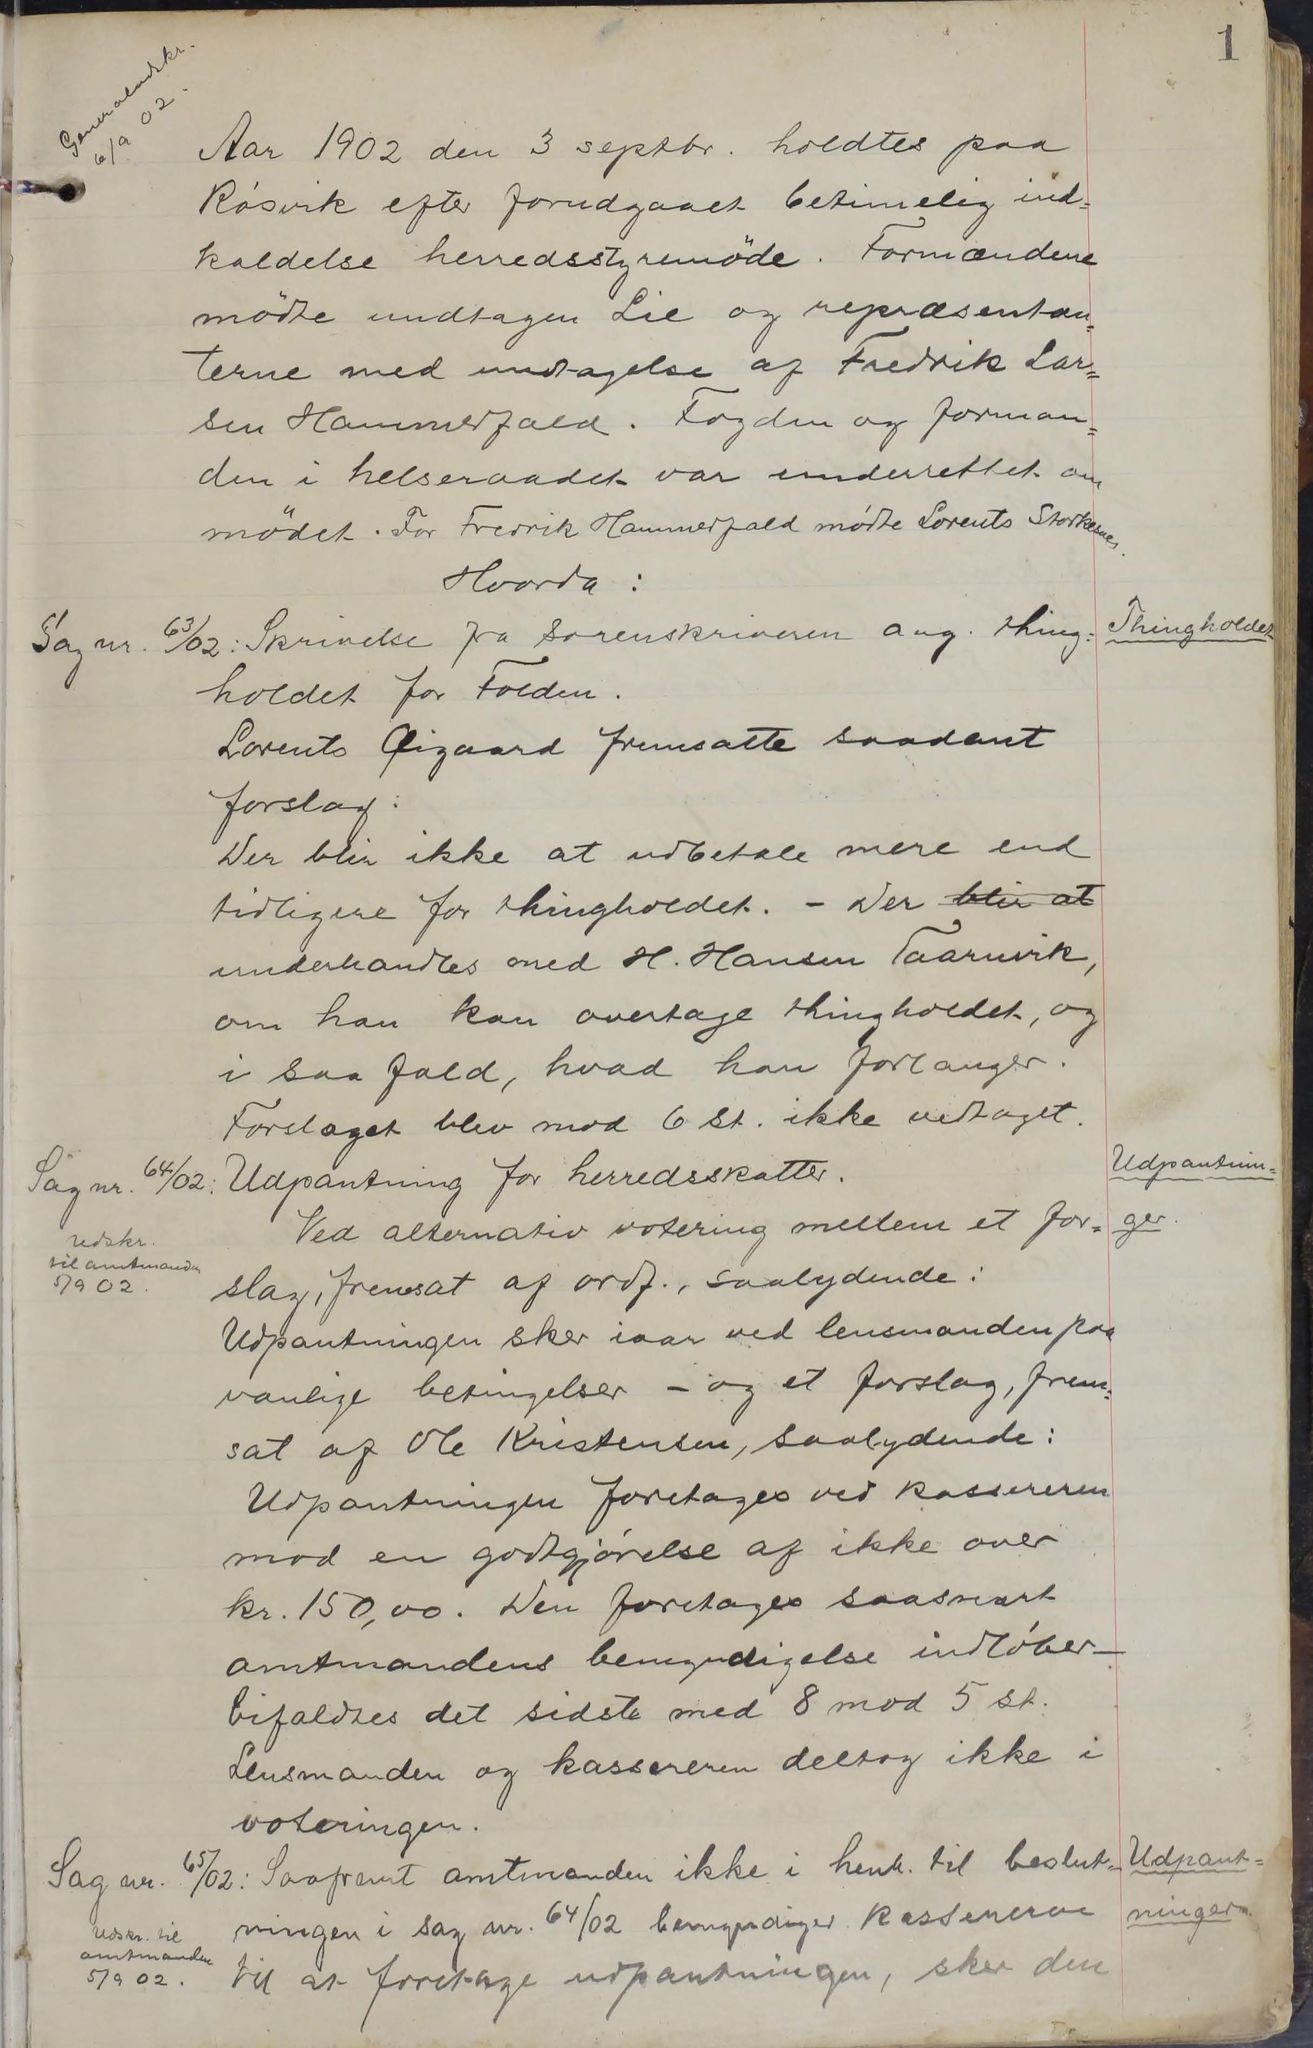 1
Generaludskr.
6/9 02.
Aar 1902 den 3 septbr. holdtes paa
Røsvik efter forudgaaet betimelig ind-
kaldelse herredsstyremöde. Formændene
mödte undtagen Lie og repræsentan-
terne med undtagelse af Fredrik Lar-
sen Hammerfald. Fogden og forman-
den i helseraadet var underrettet om
mödet. For Fredrik Hammerfald mödte Lorents Storkesnes.
Hvorda:
Sag nr. 63/02: Skrivelse fra sorenskriveren ang. thing- Thingholdet
holdet for Folden.
Lorents Øigaard fremsatte saadant
forslag:
Der blir ikke at udbetale mere end
tidligere for thingholdet. - Der blir at
underhandles med H. Hansen Taarnvik,
om han kan overtage thingholdet, og
i saa fald, hvad han forlanger.
Forslaget blev mod 6 st. ikke vedtaget.
Sag nr. 64/02: Udpantning for herredsskatter. Udpantnin-
Ved alternativ votering mellem et for- ger.
udskr.
til amtmanden
5/9 02.
slag, fremsat af ordf., saalydende:
Udpantningen sker iaar ved lensmanden paa
vanlige betingelser - og et forslag, frem-
sat af Ole Kristensen, saalydende:
Udpantningen foretages ved kassereren
mod en godtgjørelse af ikke over
kr. 150,00. Den foretages saasnart
amtmandens bemyndigelse indløber -
bifaldtes det sidste med 8 mod 5 st.
Lensmanden og kassereren deltog ikke i
voteringen.
Sag nr. 65/02: Saafremt amtmanden ikke i henh. til beslut- Udpant-
ningen i sag nr. 64/02 bemyndiger kassereren ninger.
Udskr. til
amtmanden
5/9 02.
til at foretage udpantningen, sker den